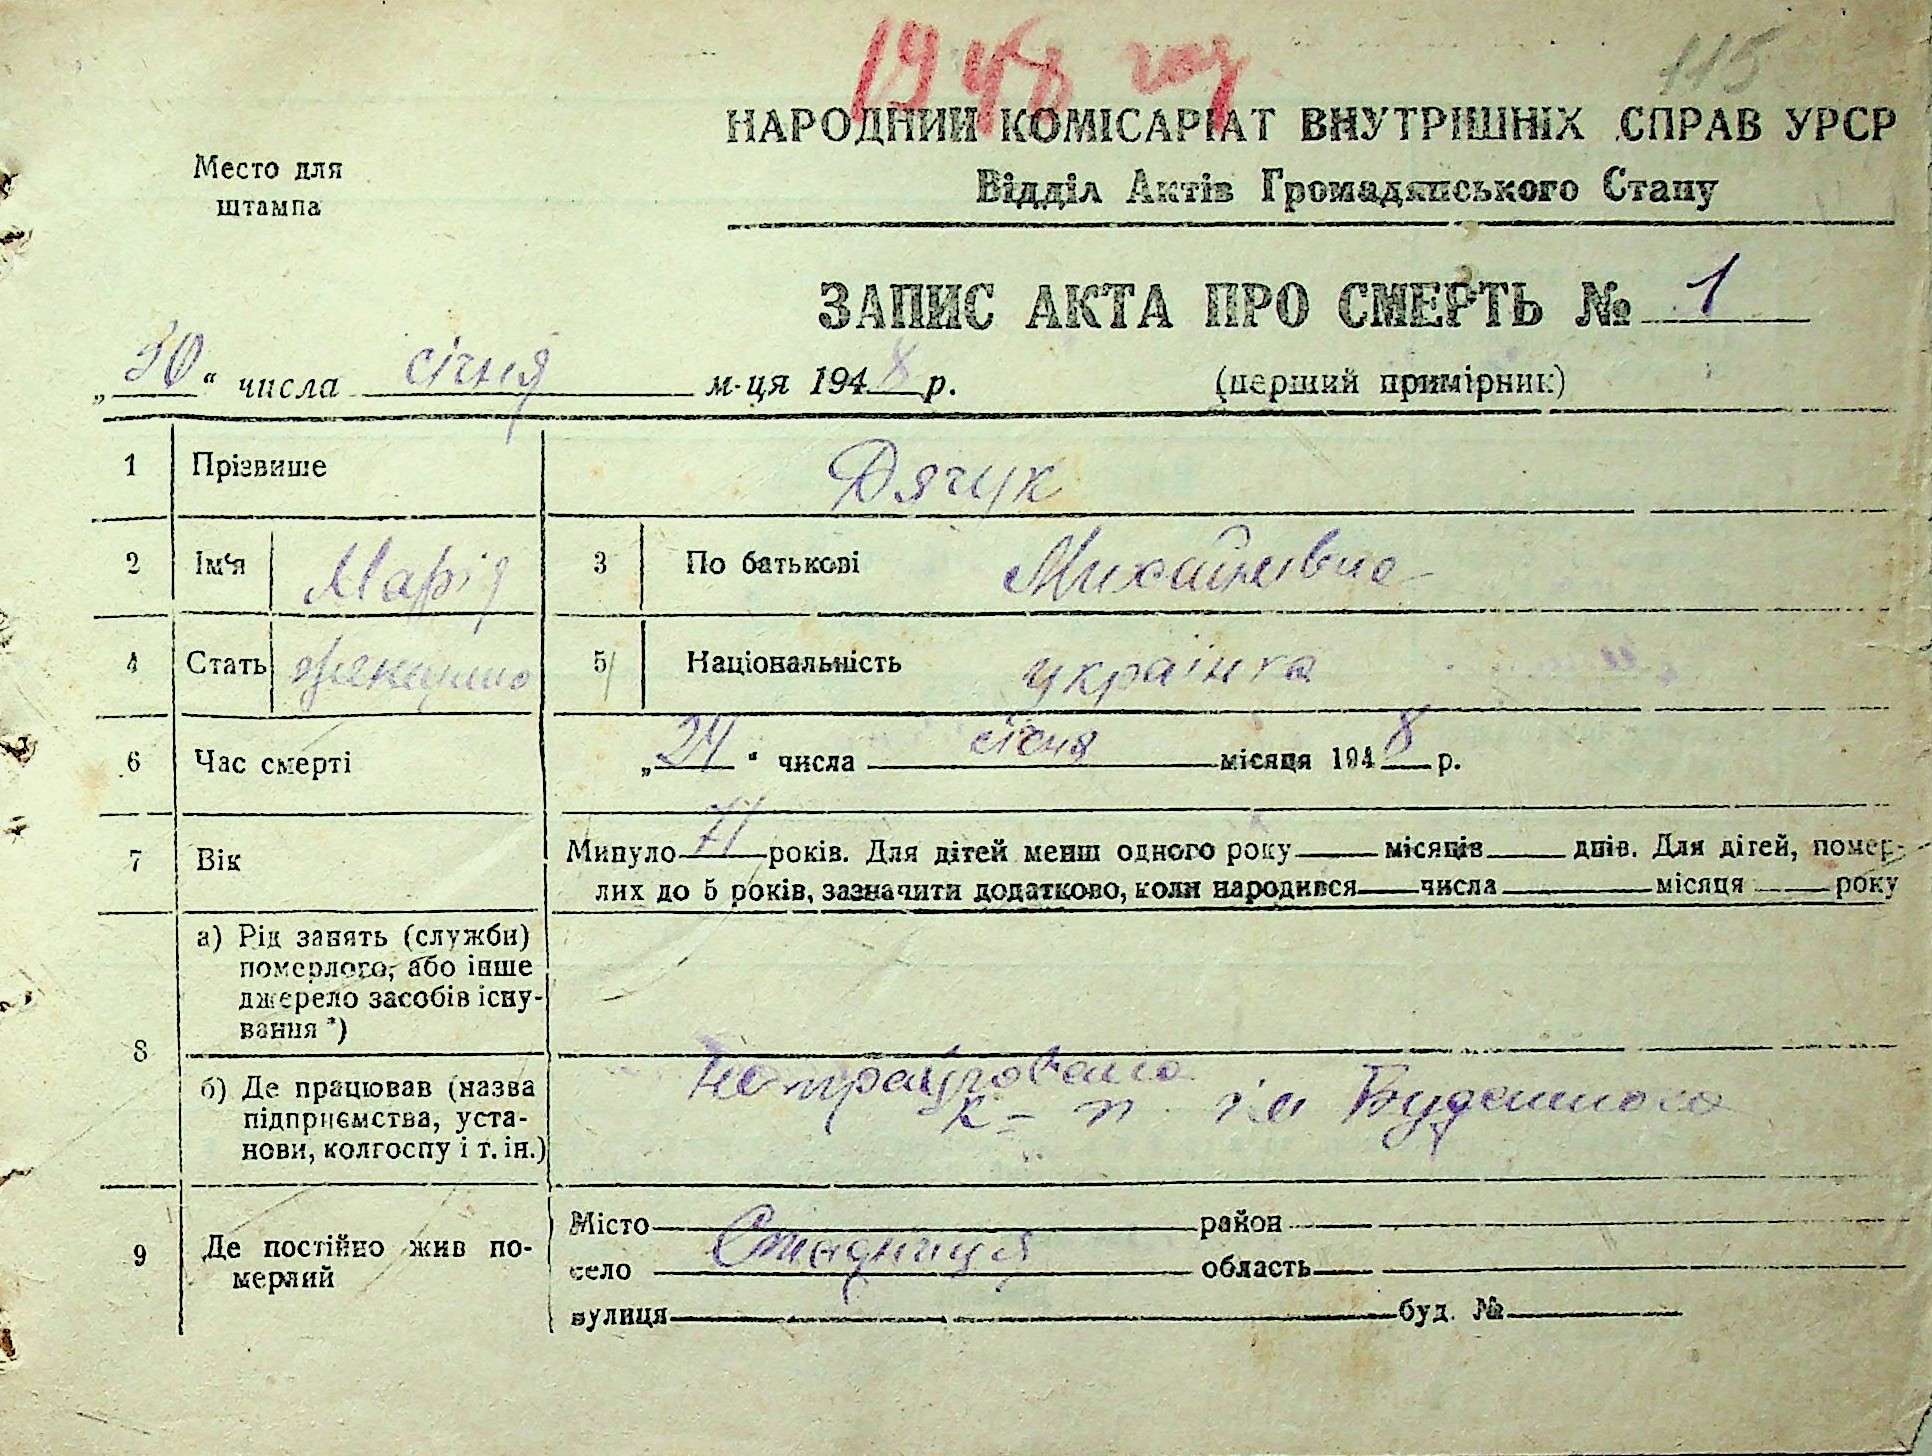 1948 год
115
НАРОДНИЙ КОМІСАРІАТ ВНУТРІШНІХ СПРАВ УРСР
Відділ Актів Громадянського Стану
Место для
штампа
ЗАПИС АКТА ПРО СМЕРТЬ № 1
„30“ числа січня м-ця 1948 р.
(перший примірник)
1 Прізвише Дячук
2 Ім'я Марія 3 По батькові Михайлівна
4 Стать 5 Національність українка
6 Час смерті „24“ числа січня місяця 1948 р.
7 Вік Минуло 71 років. Для дітей менш одного року місяців днів. Для дітей, помер-
лих до 5 років, зазначити додатково, коли народився числа місяця року
8 а) Рід занять (служби)
померлого, або інше
джерело засобів існу-
вання *)
б) Де працював (назва
підприємства, уста-
нови, колгоспу і т. ін.)
не працювала
к-п ім Буденного
9 Де постійно жив по-
мерлий
Місто район
село Стадниця область
вулиця буд. №